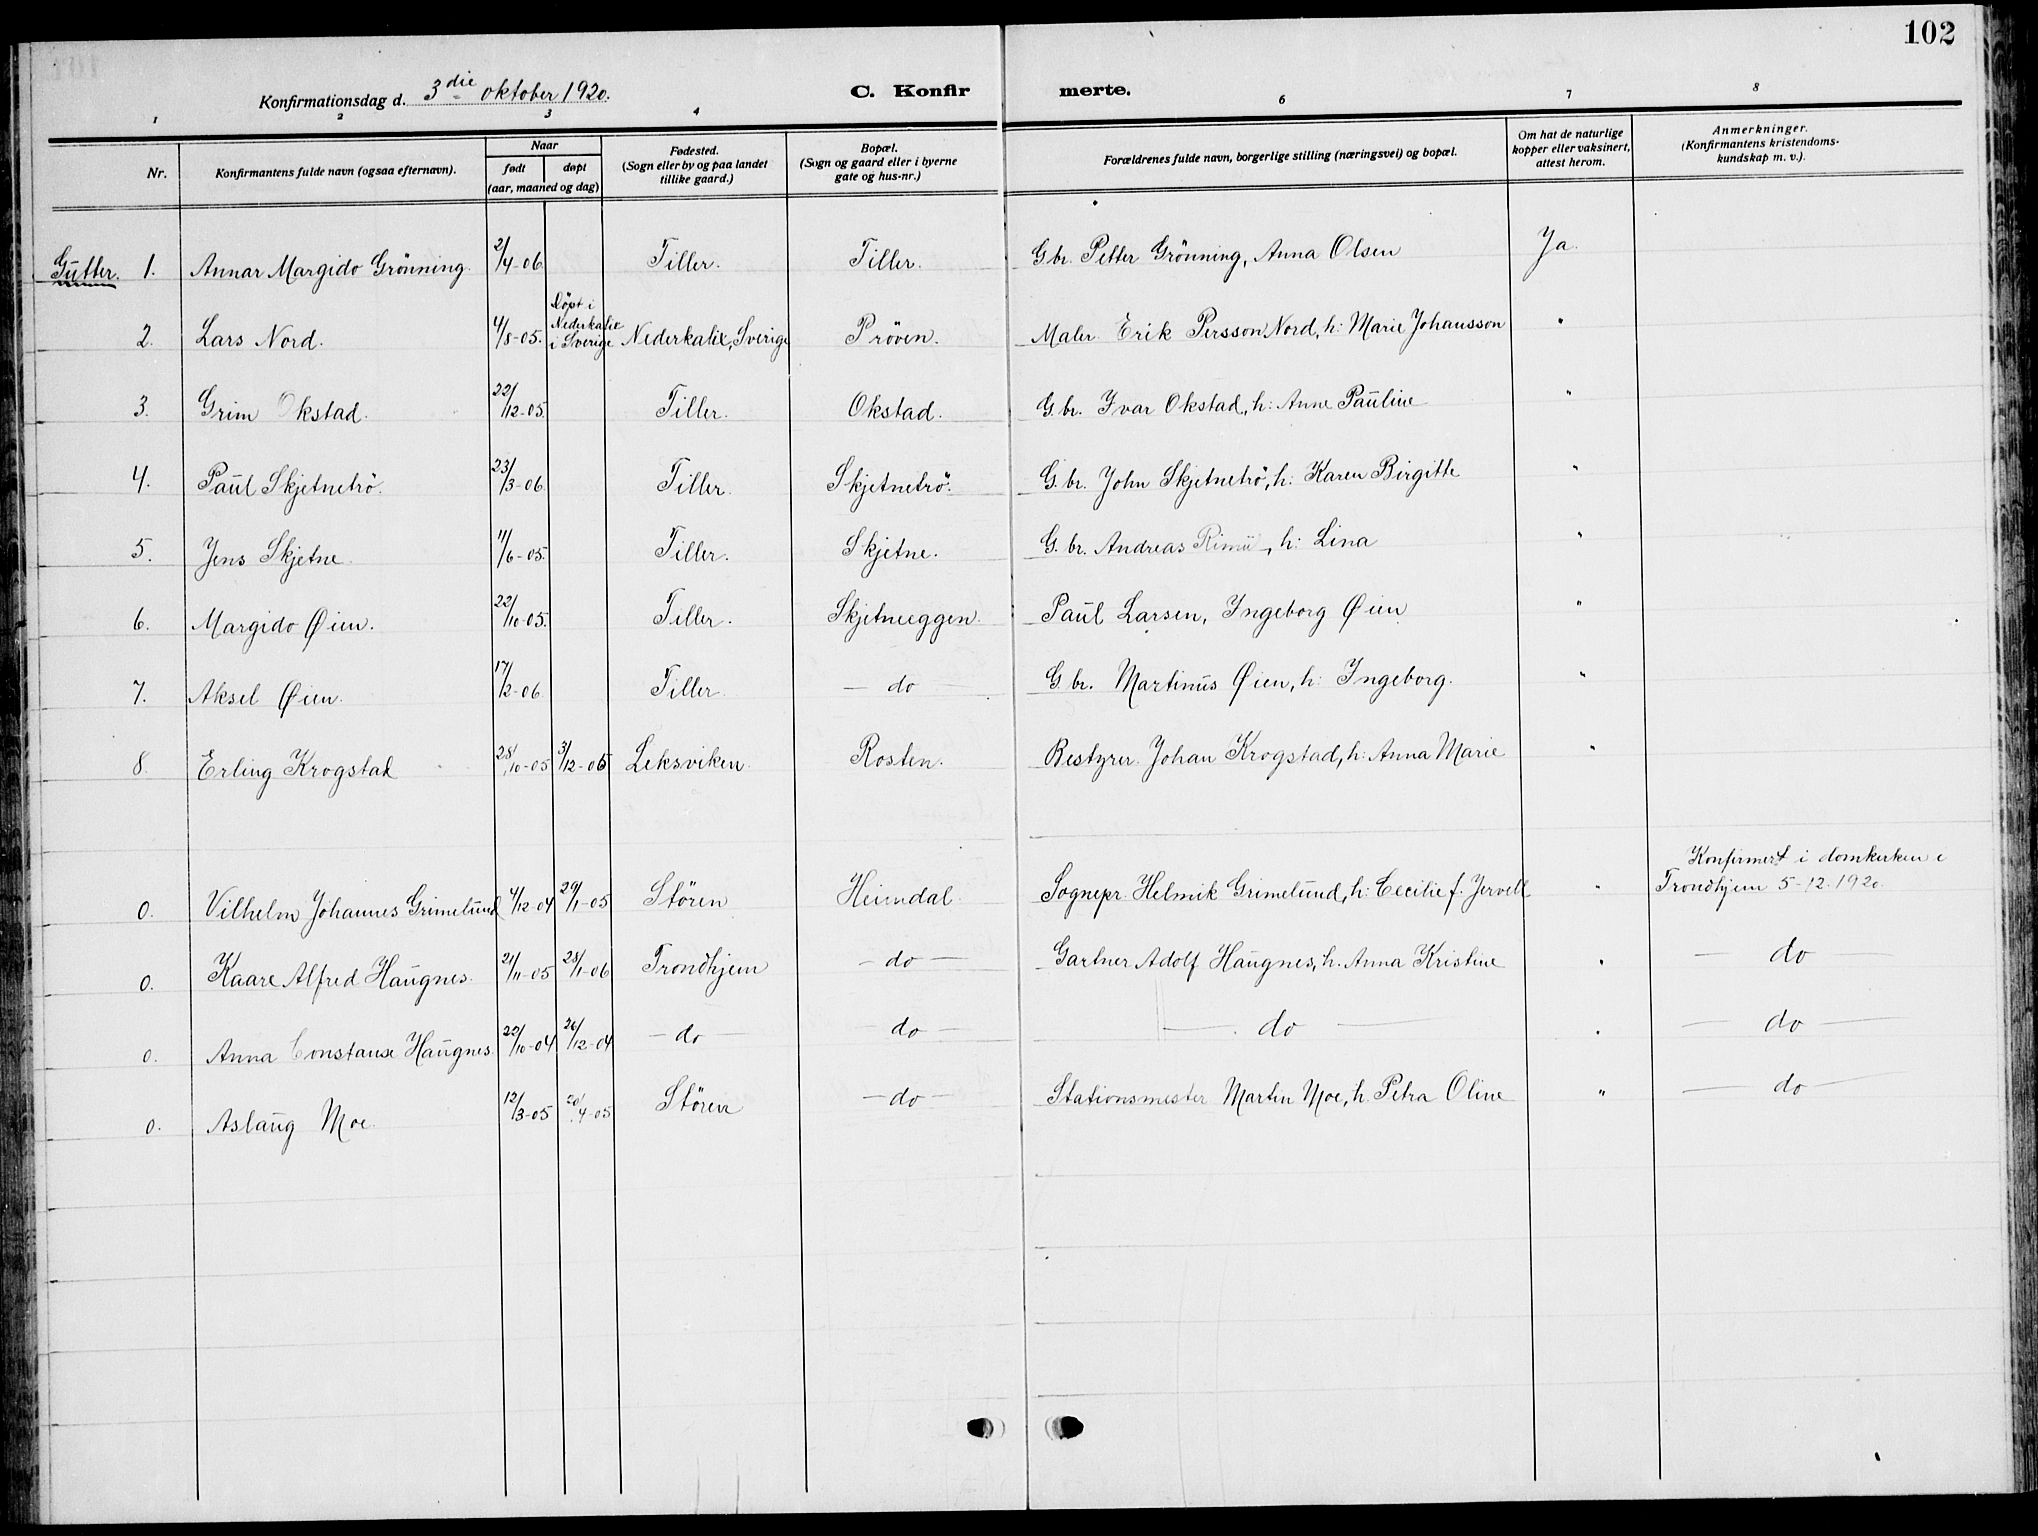 102
Konfirmationsdag d. 3die oktober 1920. C. Konfirmerte.
1 2 3 4 6 7 8
Nr. Konfirmantens fulde navn (ogsaa efternavn). Naar født døpt (aar, maaned og dag) Fødested. (Sogn eller by og paa landet tillike gaard.) Bopæl. (Sogn og gaard eller i byerne gate og hus-nr.) Forældrenes fulde navn, borgerlige stilling (næringsvei) og bopæl. Om hat de naturlige kopper eller vaksinert, attest herom. Anmerkninger. (Konfirmantens kristendoms-kundskap m. v.).
Gutter. 1. Annar Margido Grönning. 2/4-06 Tiller. Tiller. G.br. Petter Grönning, Anna Olsen Ja.
2. Lars Nord. 4/8-05. Döpt i Nederkalix i Sverige Nederkalix, Sverige Pröven. Maler Erik Persson Nord, h: Marie Johansson "
3. Grim Okstad. 22/12-05. Tiller. Okstad. G.br. Ivar Okstad, h: Anne Pauline "
4. Paul Skjetnetrö. 23/3-06. Tiller. Skjetnetrö. G.br. John Skjetnetrö, h: Karen Birgitte "
5. Jens Skjetne. 11/6-05. Tiller. Skjetne. G.br. Andreas Rimii, h: Lina "
6. Margido Øien. 22/10-05. Tiller. Skjetneeggen. Paul Larsen, Ingeborg Øien "
7. Aksel Øien. 17/2-06. Tiller. – do – G.br. Martinus Øien, h: Ingeborg. "
8. Erling Krogstad 28/10-05 3/12-05 Leksviken. Rosten. Bestyrer Johan Krogstad, h: Anna Marie "
0. Vilhelm Johannes Grimelund 4/12-04 29/1-05 Stören Heimdal. Sognepr. Helmik Grimelund, h: Cecilie f. Jervell " Konfirmert i domkirken i Trondhjem 5-12-1920.
0. Kaare Alfred Haugnes. 21/11-05 28/1-06 Trondhjem – do – Gartner Adolf Haugnes, h. Anna Kristine " – do –
0. Anna Constanse Haugnes. 22/10-04 26/12-04 – do – – do – – do – " – do –
0. Aslaug Moe. 12/3-05 20/4-05 Stören – do – Stationsmester Martin Moe, h. Petra Oline " – do –